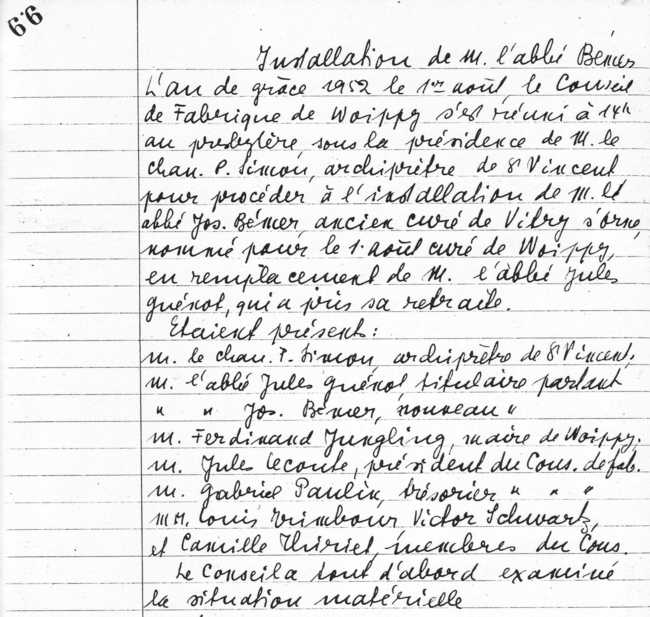 99
Installation de M. l'abbé Bémer
L'an de grâce 1952 le 1er août, le Conseil
de Fabrique de Woippy s'est réuni à 14h
au presbytère, sous la présidence de M. le
chan. P. Simon, archiprêtre de St Vincent
pour procéder à l'installation de M. l'
abbé Jos. Bémer, ancien curé de Vitry s'orne,
nommé pour le 1. août curé de Woippy,
en remplacement de M. l'abbé Jules
Guénot, qui a pris sa retraite.
Etaient présent :
M. le chan. P. Simon, archiprêtre de St Vincent.
M. l'abbé Jules Guénot titulaire partant
" " Jos. Bémer, nouveau "
M. Ferdinand Jungling, maire de Woippy.
M. Jules Lecoute, président du Cons. de fab.
M. Gabriel Paulin, trésorier " " "
MM. Louis Trimbour Victor Schwartz,
et Camille Thiriet, membres du Cons.
Le Conseil a tout d'abord examiné
la situation matérielle